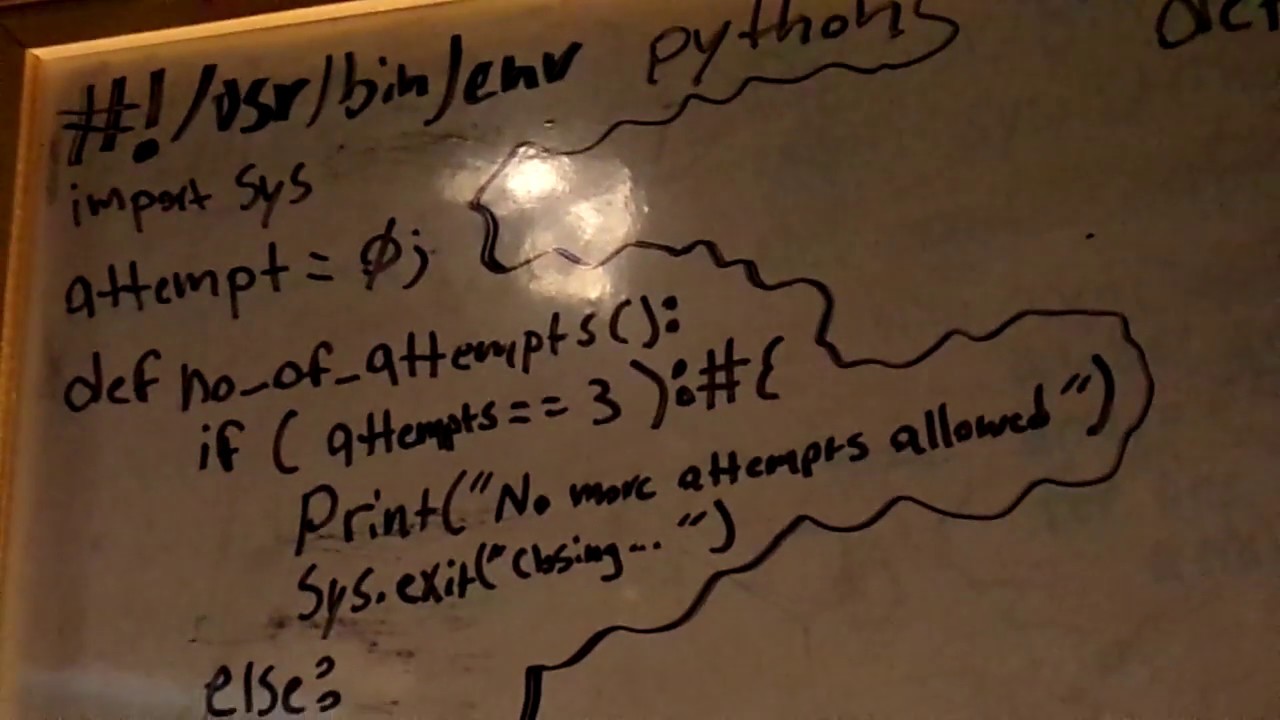 #!/usr/bin/env python3
import sys
attempt = 0;
def no_of_attempts():
if ( attempts == 3 ):#{
Print("No more attempts allowed")
Sys.exit("Closing... ")
else:
def